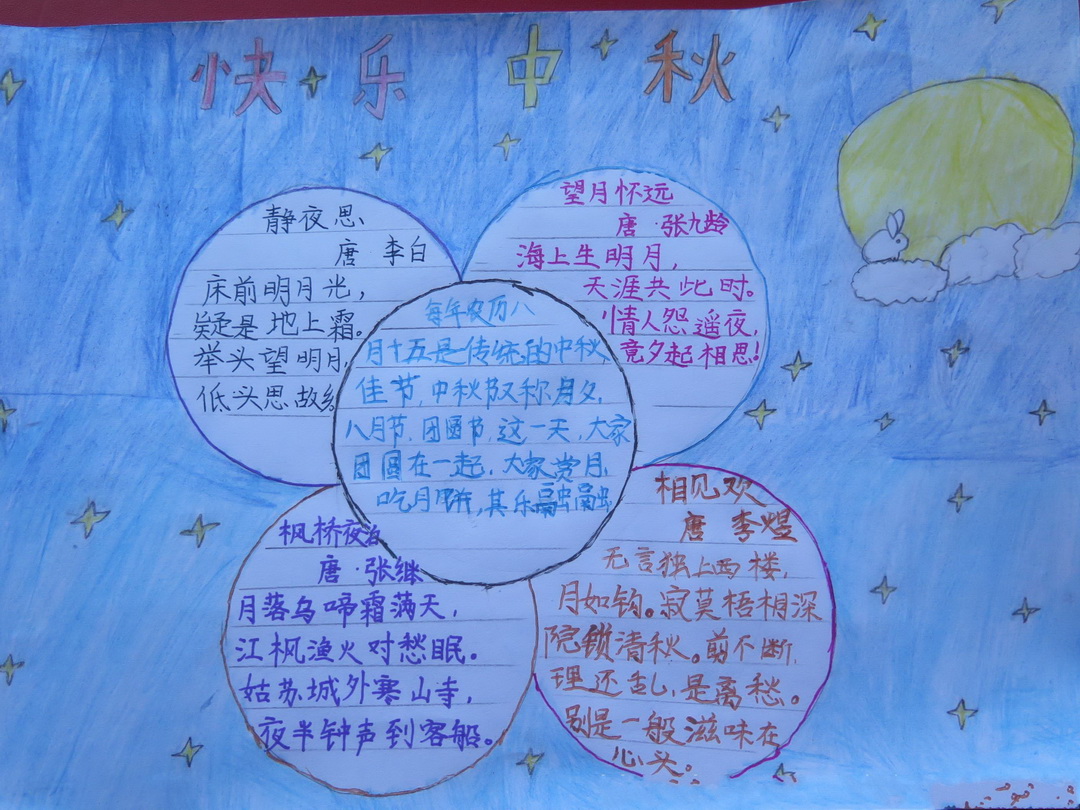 快乐中秋
静夜思
唐·李白
床前明月光，
疑是地上霜。
举头望明月，
低头思故乡
望月怀远
唐·张九龄
海上生明月，
天涯共此时。
情人怨遥夜，
竟夕起相思！
每年农历八
月十五是传统的中秋
佳节，中秋节又称月夕，
八月节，团圆节，这一天，大家
团圆在一起，大家赏月，
吃月饼，其乐融融
枫桥夜泊
唐·张继
月落乌啼霜满天，
江枫渔火对愁眠。
姑苏城外寒山寺，
夜半钟声到客船。
相见欢
唐 李煜
无言独上西楼，
月如钩。寂寞梧桐深
院锁清秋。剪不断，
理还乱，是离愁。
别是一般滋味在
心头。